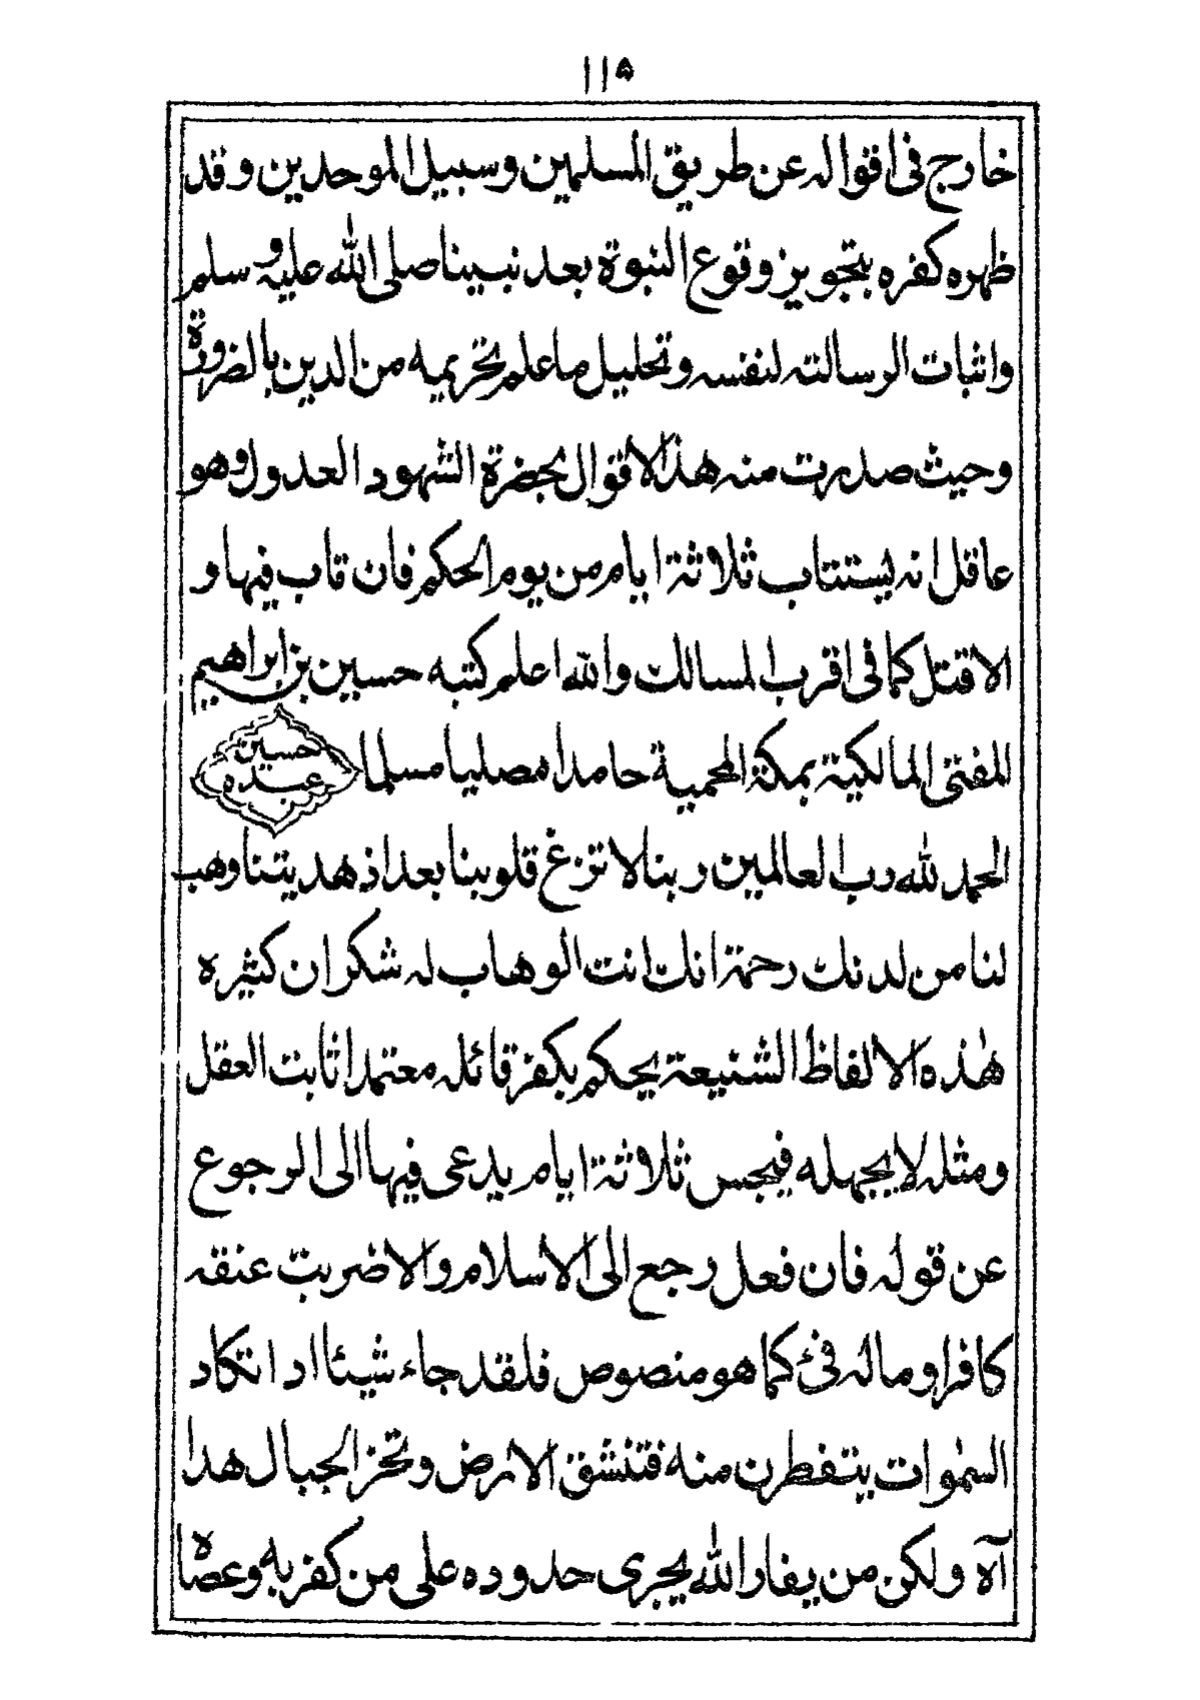 ١١٥
خارج فى اقواله عن طريق المسلمين وسبيل الموحدين وقد
ظهره كفره بتجويز وقوع النبوة بعد نبينا صلى الله عليه وسلم
واثبات الرسالته لنفسه وتحليل ما علم تحريمه من الدين بالضرورة
وحيث صدرت منه هذا الاقوال بحضرة الشهود العدول وهو
عاقل انه يستتاب ثلاثة ايام من يوم الحكم فان تاب فيها و
الا قتل كما فى اقرب المسالك والله اعلم كتبه حسين بن ابراهيم
المفتى المالكية بمكة المحمية حامدا مصليا مسلما
حسين عبده
الحمد لله رب العالمين ربنا لا تزغ قلوبنا بعد اذ هديتنا وهب
لنا من لدنك رحمة انك انت الوهاب له شكران كثيره
هٰذه الالفاظ الشنيعة يحكم بكفر قائله معتمدا ثابت العقل
ومثله لا يجهله فيحبس ثلاثة ايام يدعى فيها الى الرجوع
عن قوله فان فعل رجع الى الاسلام والا ضربت عنقه
كافرا وماله فئ كما هو منصوص فلقد جاء شيئا ادا تكاد
السمٰوات يتفطرن منه فتنشق الارض وتخر الجبال هدا
آه ولكن من يغار الله يجرى حدوده على من كفر به وعصاه